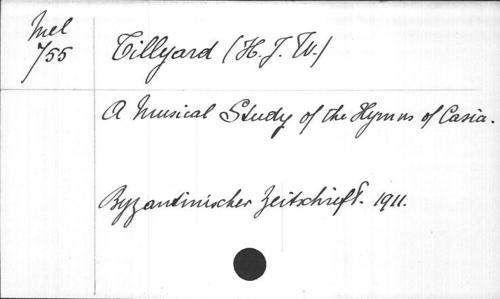 Mel
755
Tillyard (H. J. W.)
A Musical Study of the Hymns of Casia.
Byzantinischer Zeitschrift. 1911.